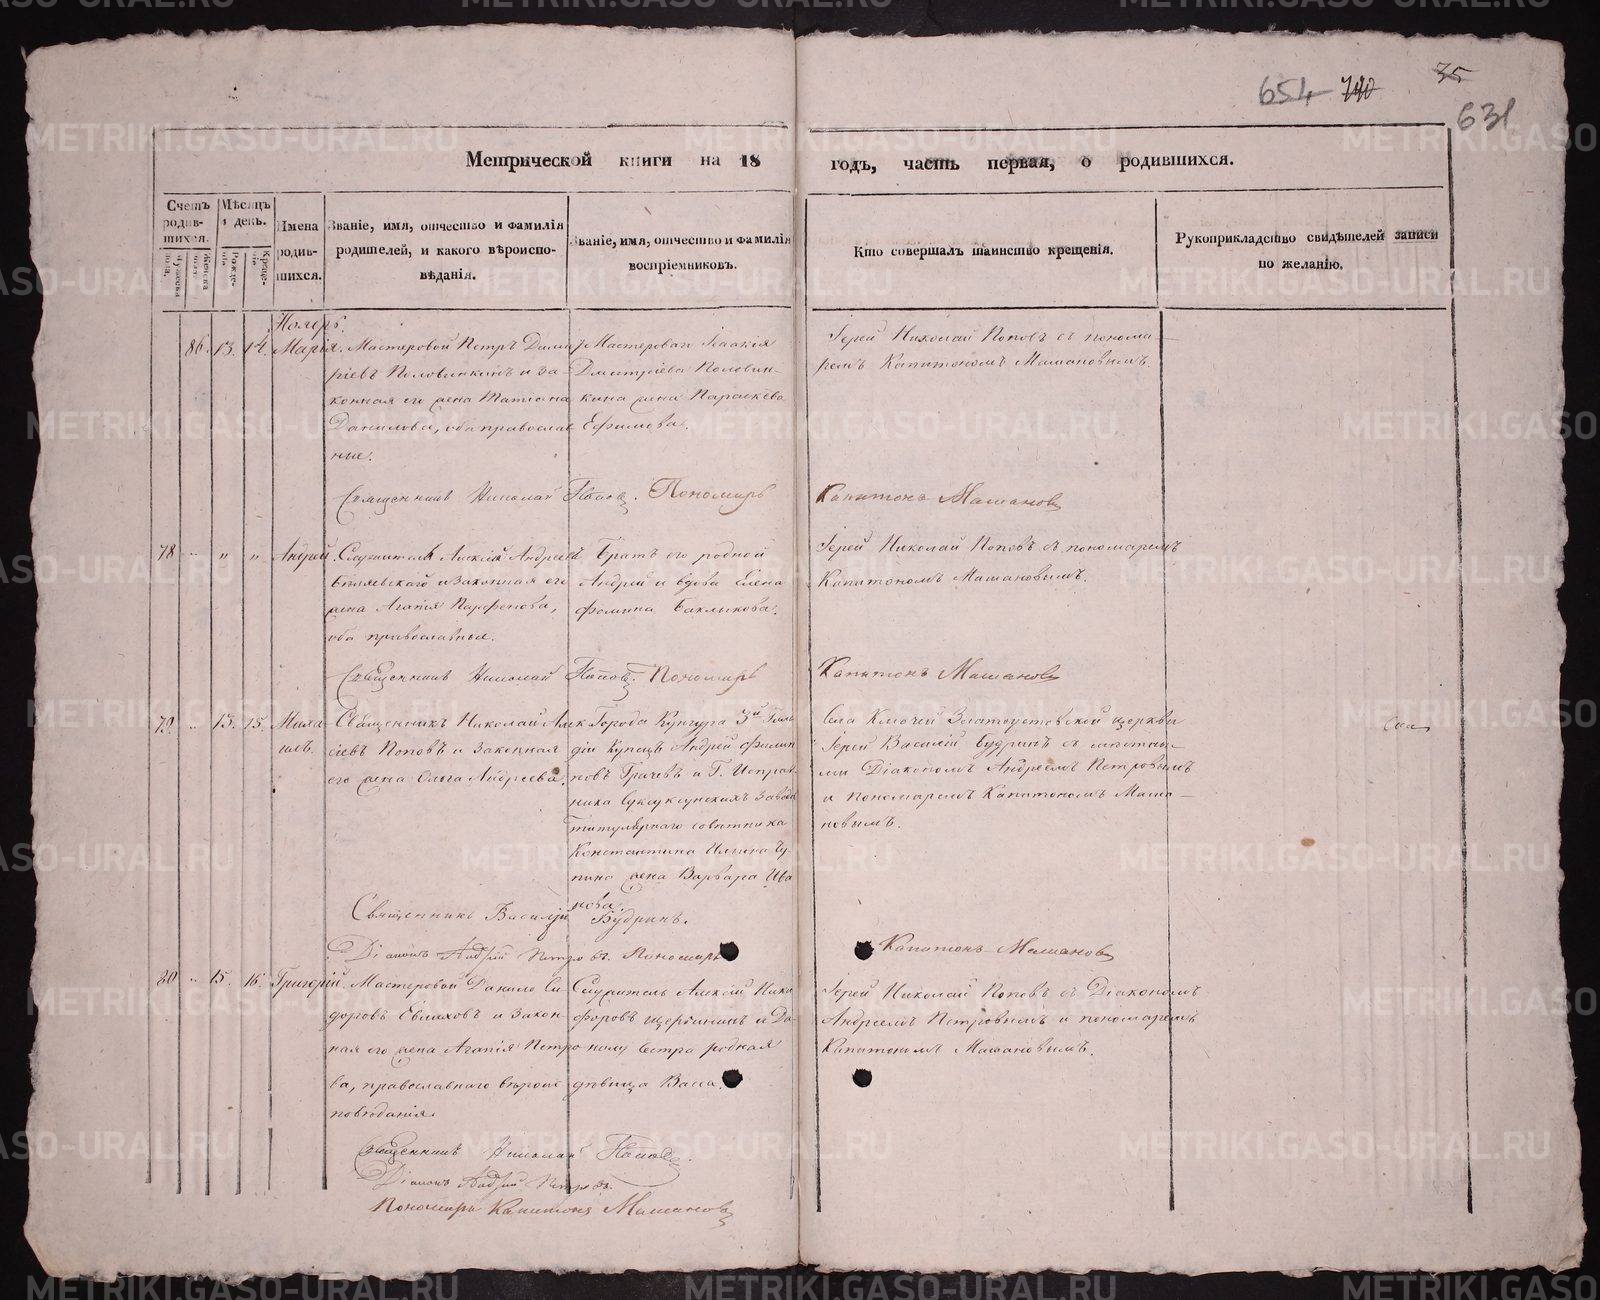 654 740 35
631
Метрической книги на 18 годъ, часть первая, о родившихся.
Счетъ родив-шихся.
Мѣсяцъ и день.
Имена родив-шихся.
Званіе, имя, отчество и фамилія родителей, и какого вѣроиспо-вѣданія.
Званіе, имя, отчество и фамилія воспріемниковъ.
Кто совершалъ таинство крещенія.
Рукоприкладство свидѣтелей записи по желанію.
Ноябрь.
86. 13. 14. Марія. Мастеровой Петръ Дмит
ріевъ Половинкинъ и за
конная его жена Татіана
Данилова, оба православ
ные.
Мастероваго Ісаакія
Дмитріева Половин-
кина жена Параскева
Ефимова.
Іерей Николай Поповъ съ понома
ремъ Капитономъ Машановымъ.
Священникъ Николай Поповъ. Пономарь Капитонъ Машановъ
78 .. " " Андрей. Служитель Алексѣй Андреевъ
и законная его
жена Агапія Парфенова,
оба православные.
Братъ его родной
Андрей и вдова Елена
Фомина Баклыкова.
Іерей Николай Поповъ съ пономаремъ
Капитономъ Машановымъ.
Священникъ Николай Поповъ. Пономарь Капитонъ Машановъ
79. .. 13. 15. Миха-
илъ.
Священникъ Николай Алек
сіевъ Поповъ и законная
его жена Ольга Андреева.
Города Кунгура 3й Гиль
діи Купецъ Андрей Филип
повъ Грачевъ и Г. Исправ
ника Суксунскихъ Завода
титулярнаго совѣтника
Константина Ильина Чу-
пина жена Варвара Ива
нова.
Села Ключей Златоустовской церкви
Іерей Василій Будринъ съ мѣстны-
ми Діакономъ Андреемъ Петровымъ
и пономаремъ Капитономъ Маша-
новымъ.
Священникъ Василій Будринъ.
Діаконъ Андрей Петровъ. Пономарь Капитонъ Машановъ
80 .. 15. 16. Григорій. Мастеровой Данило Си
доровъ Евлаховъ и закон-
ная его жена Агапія Петро
ва, православнаго вѣроис
повѣданія.
Служитель Алексѣй Ники
форовъ Щербининъ и Да-
нилу сестра родная
дѣвица Васса.
Іерей Николай Поповъ съ Діакономъ
Андреемъ Петровымъ и пономаремъ
Капитономъ Машановымъ.
Священникъ Николай Поповъ.
Діаконъ Андрей Петровъ.
Пономарь Капитонъ Машановъ
METRIKI.GASO-URAL.RU